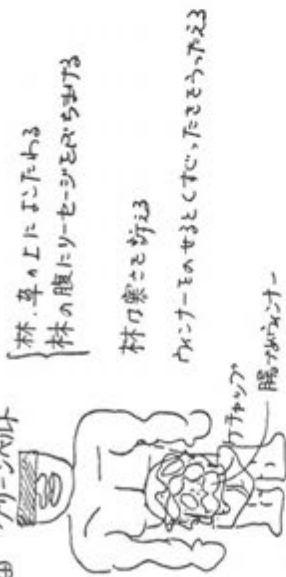 グリーンベルト
林、草の上によこたわる
林の腹にソーセージをぶちまける
林は寒さを訴える
ウィンナーをのせるとくすぐったさをうったえる
ケチャップ
腸づめウィンナー